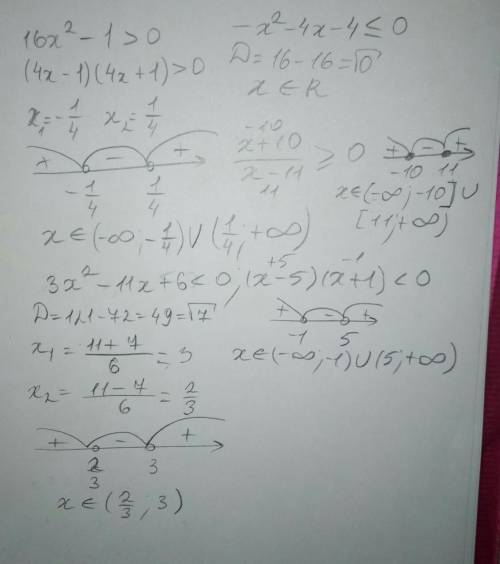 16x² − 1 > 0
(4x−1)(4x+1) > 0
x₁ = −1/4   x₂ = 1/4
+ − +
−1/4   1/4
x ∈ (−∞; −1/4) ∪ (1/4; +∞)
−x² − 4x − 4 ≤ 0
D = 16 − 16 = √0
x ∈ R
−10
x+10 / x−11 ≥ 0
11
+ − +
−10   11
x ∈ (−∞; −10] ∪
[11; +∞)
3x² − 11x + 6 < 0;
D = 121 − 72 = 49 = √7
x₁ = 11+7 / 6 = 3
x₂ = 11−7 / 6 = 2/3
+ − +
2/3   3
x ∈ (2/3; 3)
+5   −1
(x−5)(x+1) < 0
+ − +
−1   5
x ∈ (−∞; −1) ∪ (5; +∞)